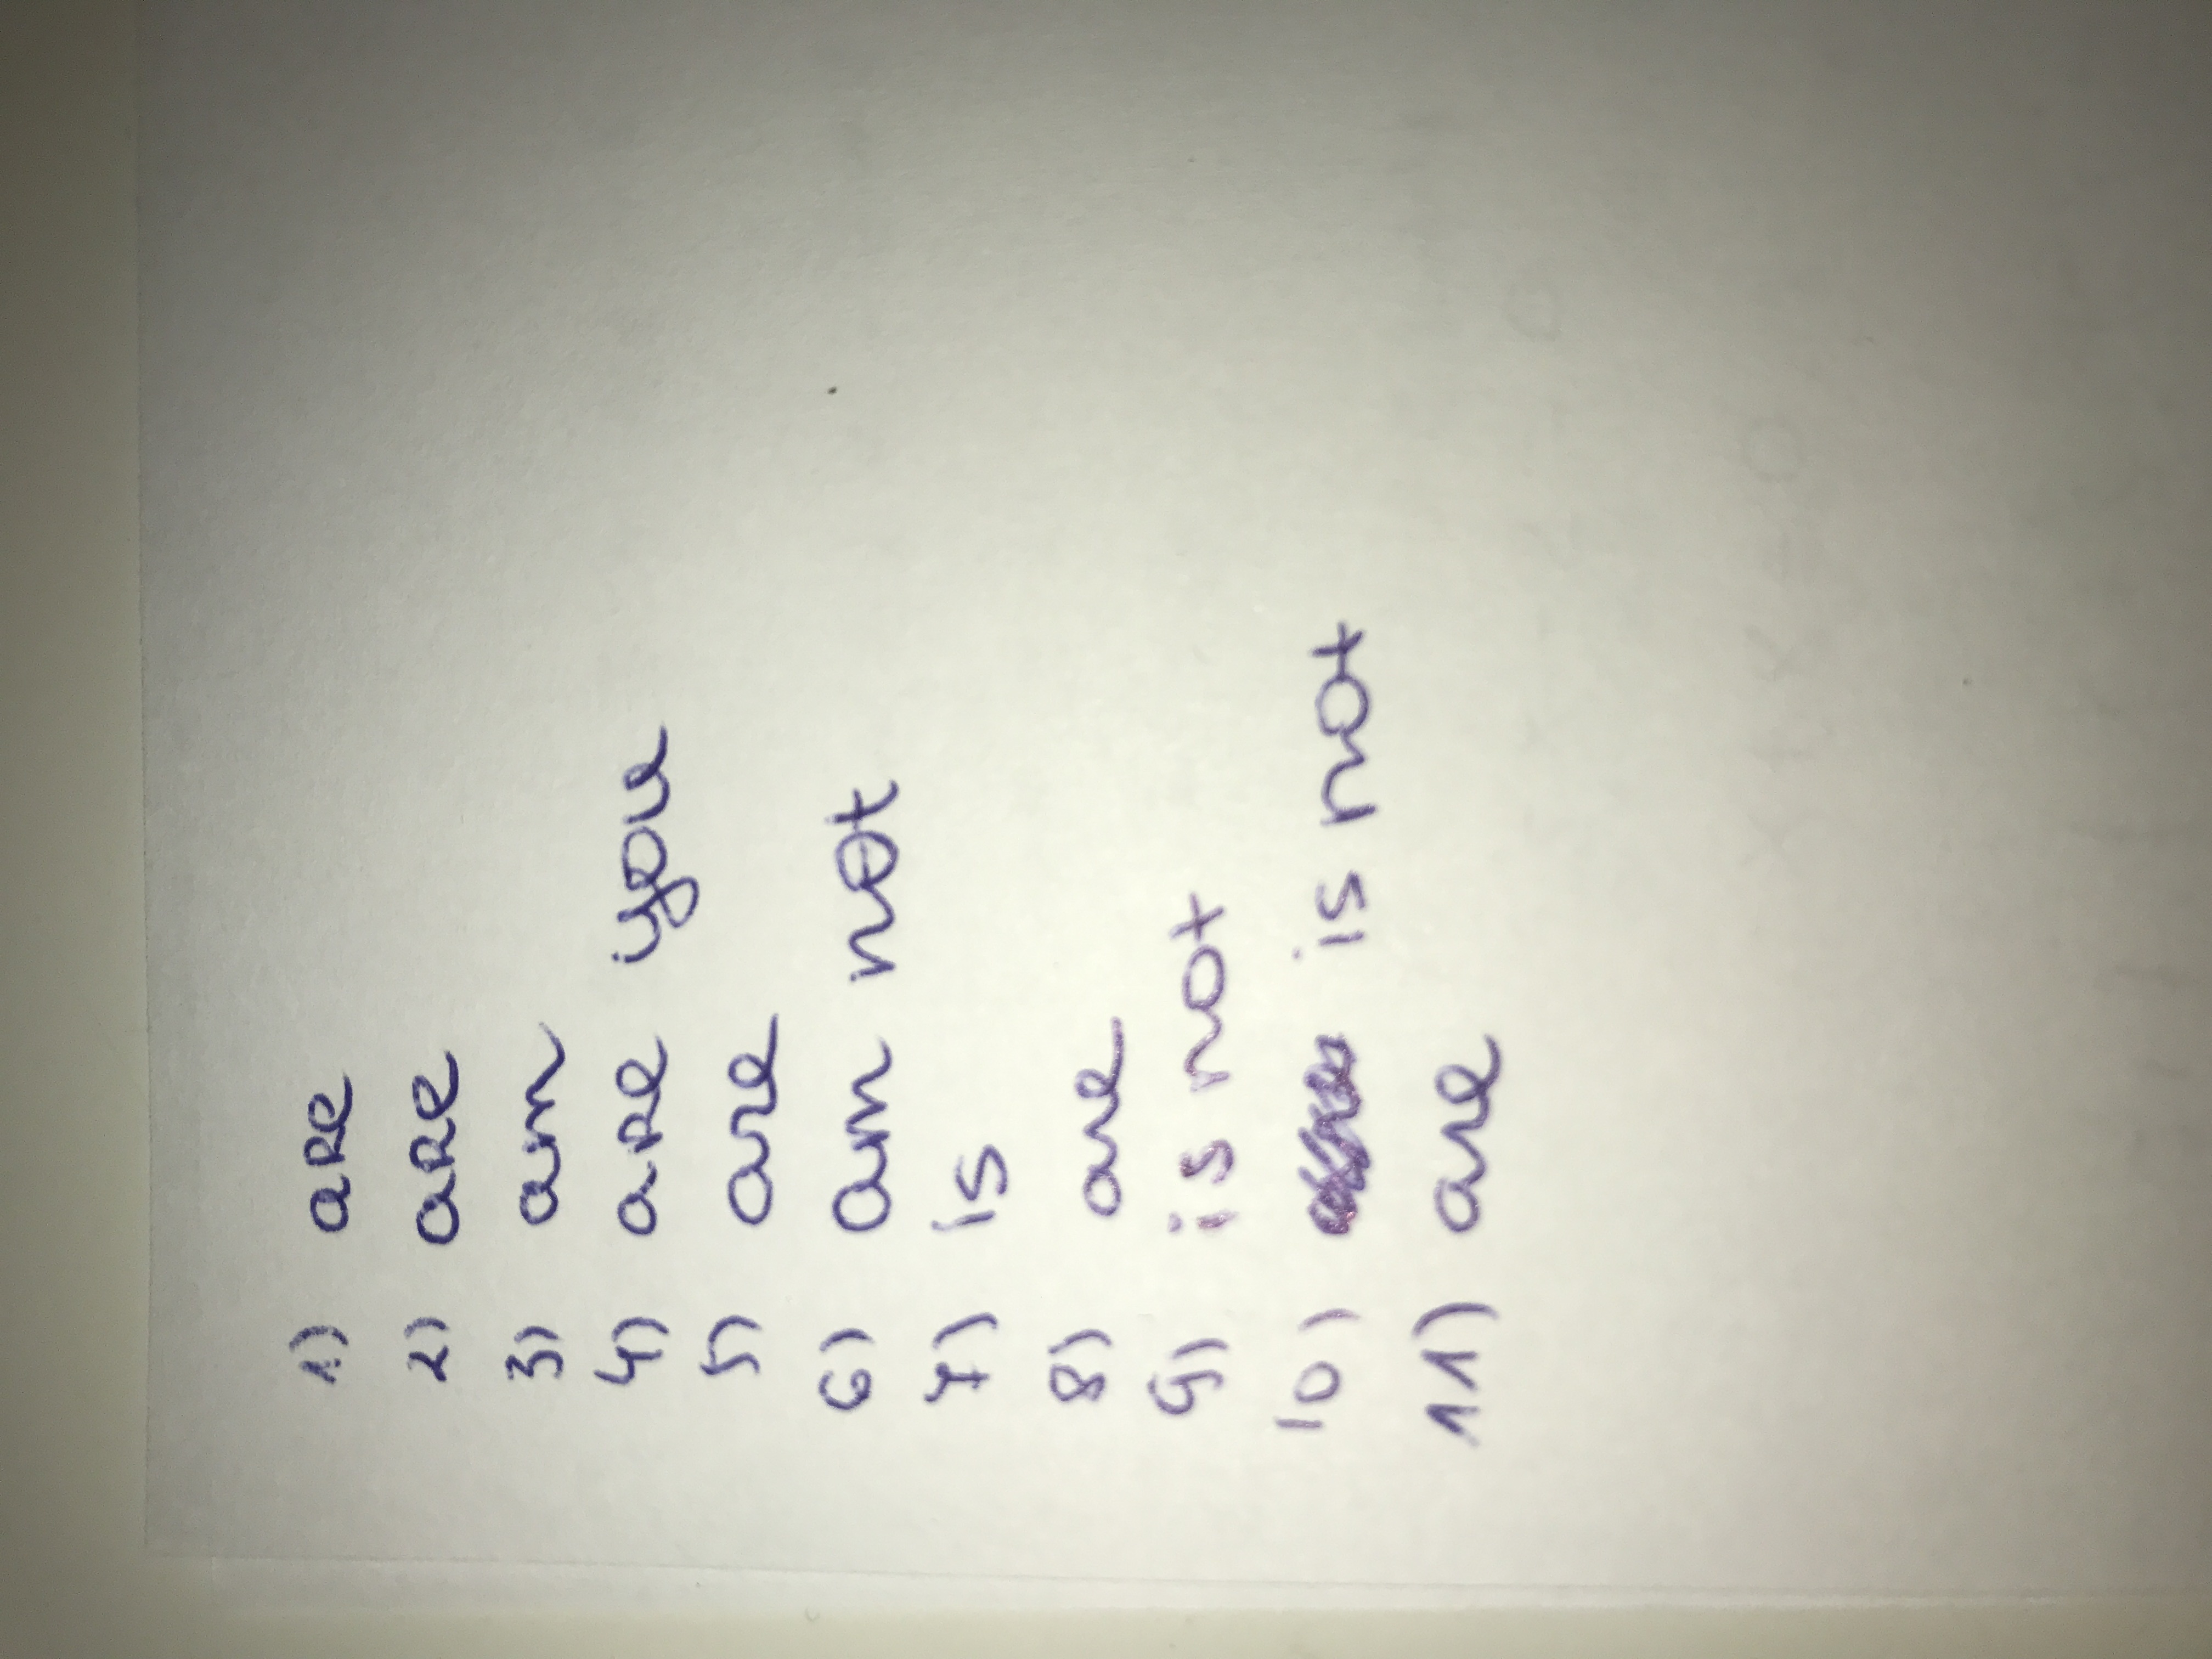 1) are
2) are
3) am
4) are you
5) are
6) am not
7) is
8) are
9) is not
10) is not
11) are